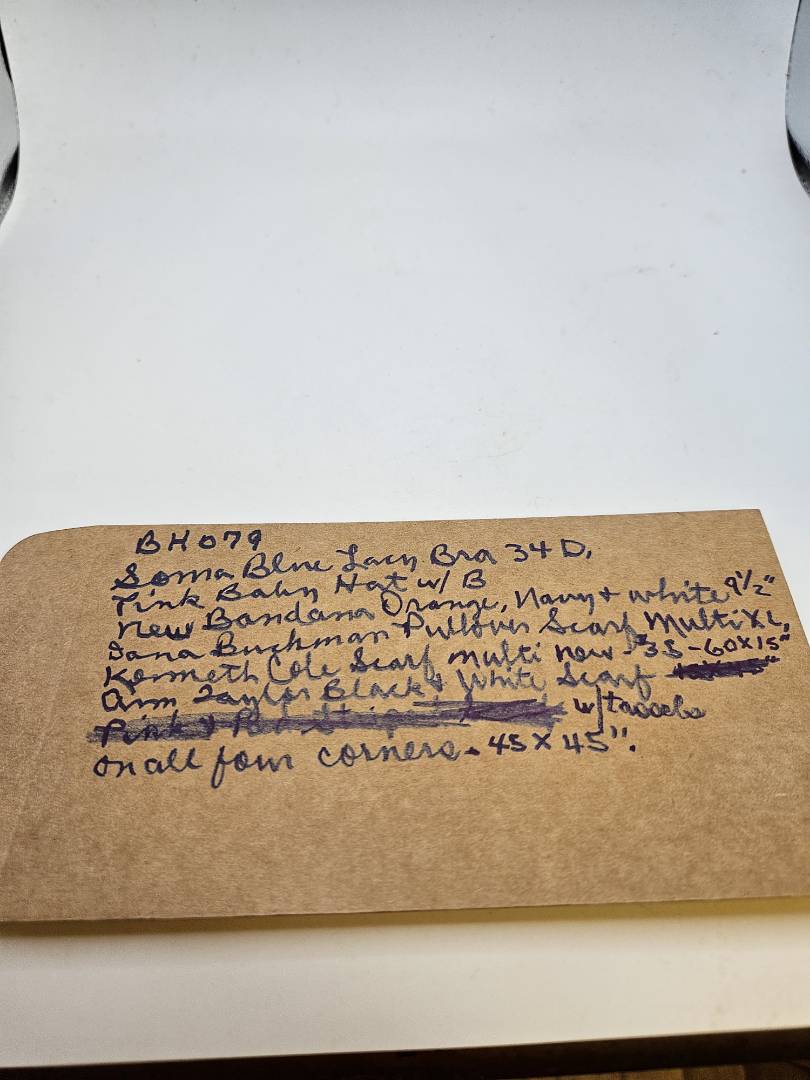 BH079
Soma Blue Lacy Bra 34D,
Pink Baby Hat w/ B
New Bandana Orange, Navy + white 9½"
Dana Buchman Pullover Scarf Multi XL,
Kenneth Cole Scarf multi new - $38 - 60x15"
Ann Taylor Black & White Scarf
w/tassels
on all four corners - 45 x 45".